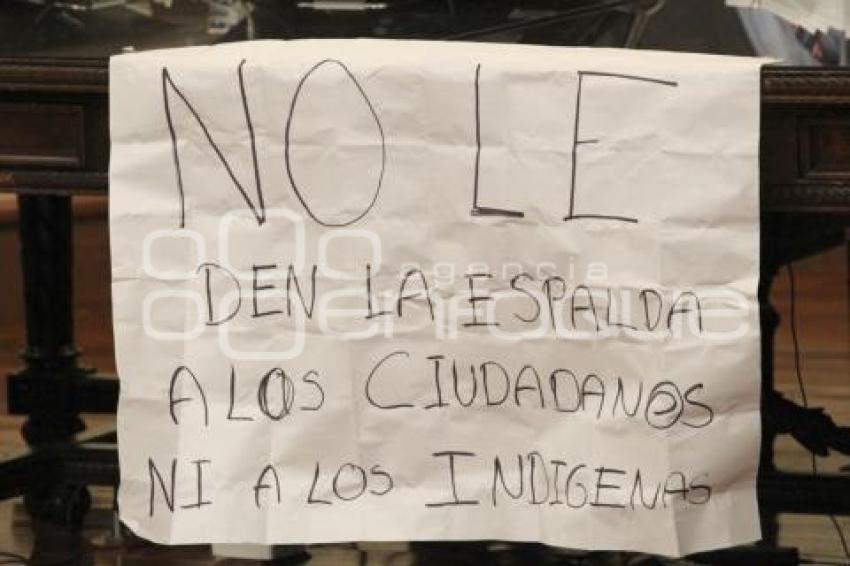 NO LE
DEN LA ESPALDA
A LOS CIUDADANOS
NI A LOS INDIGENAS
agencia
enfoque